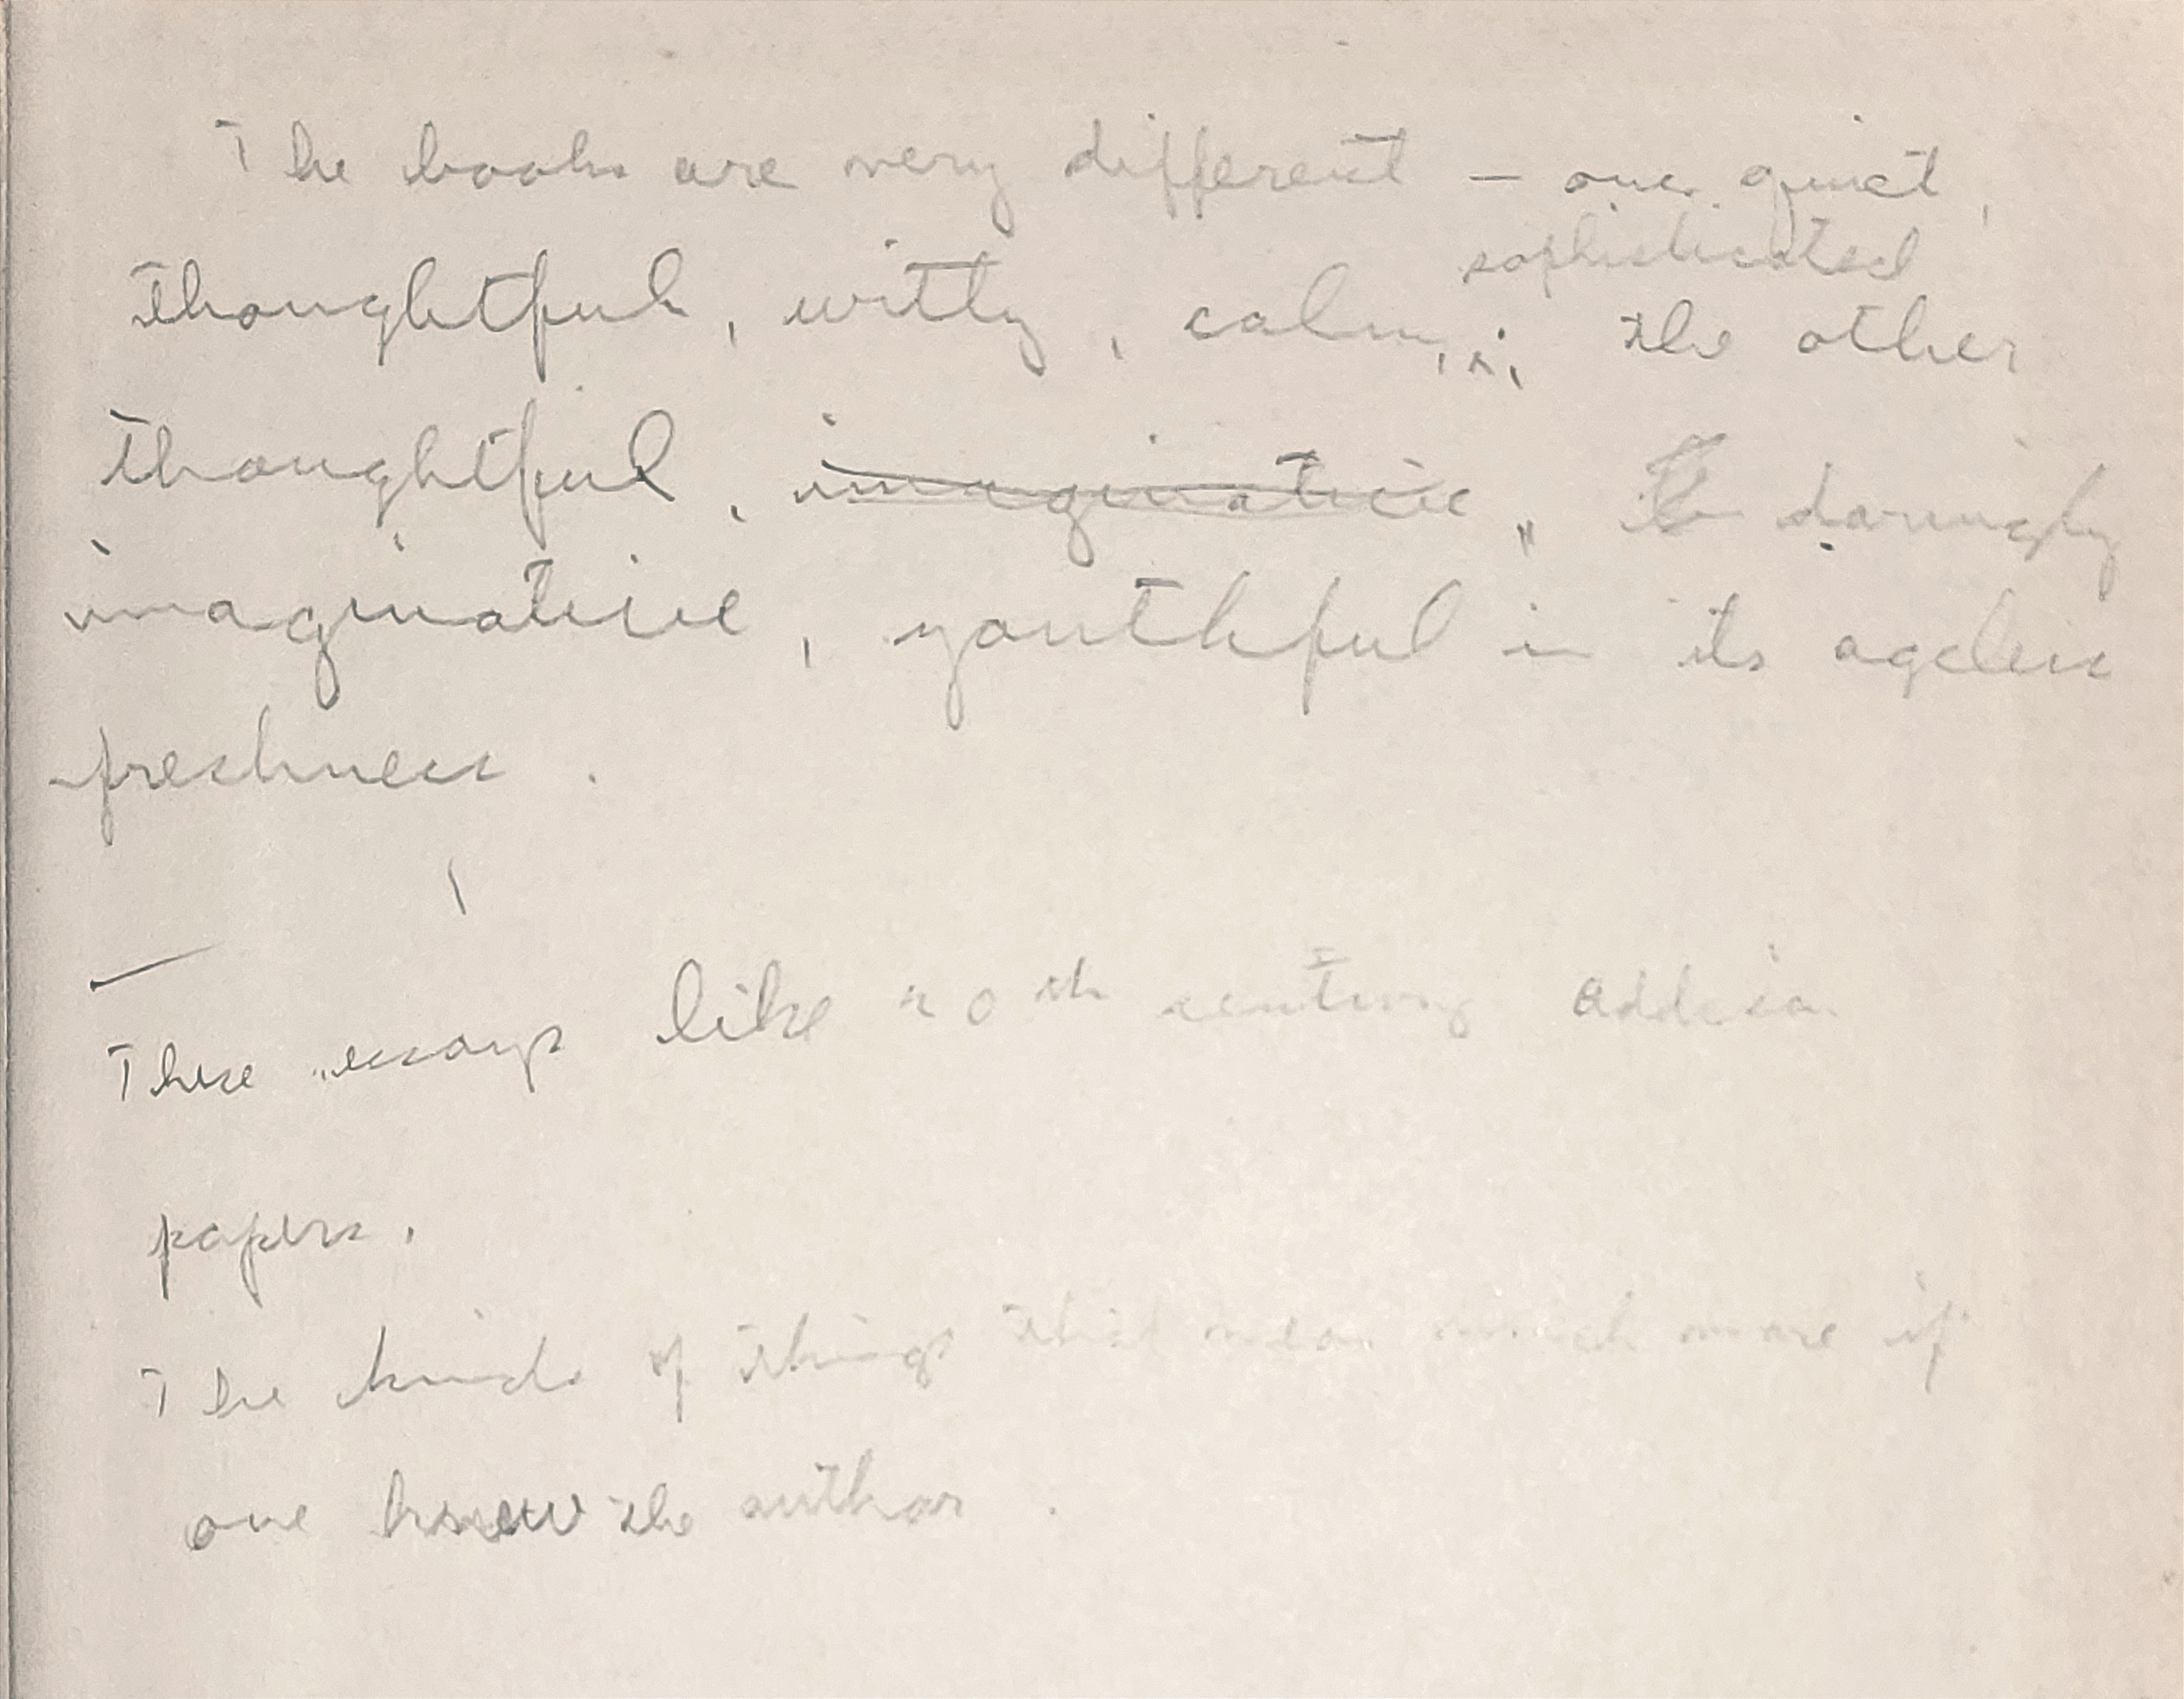 The books are very different – one quiet,
sophisticated
thoughtful, witty, calm, ; the other
thoughtful, imaginative, daringly
imaginative, youthful in its ageless
freshness.
These essays like 20th century Addison
papers.
The kinds of things that mean much more if
one knew the author.